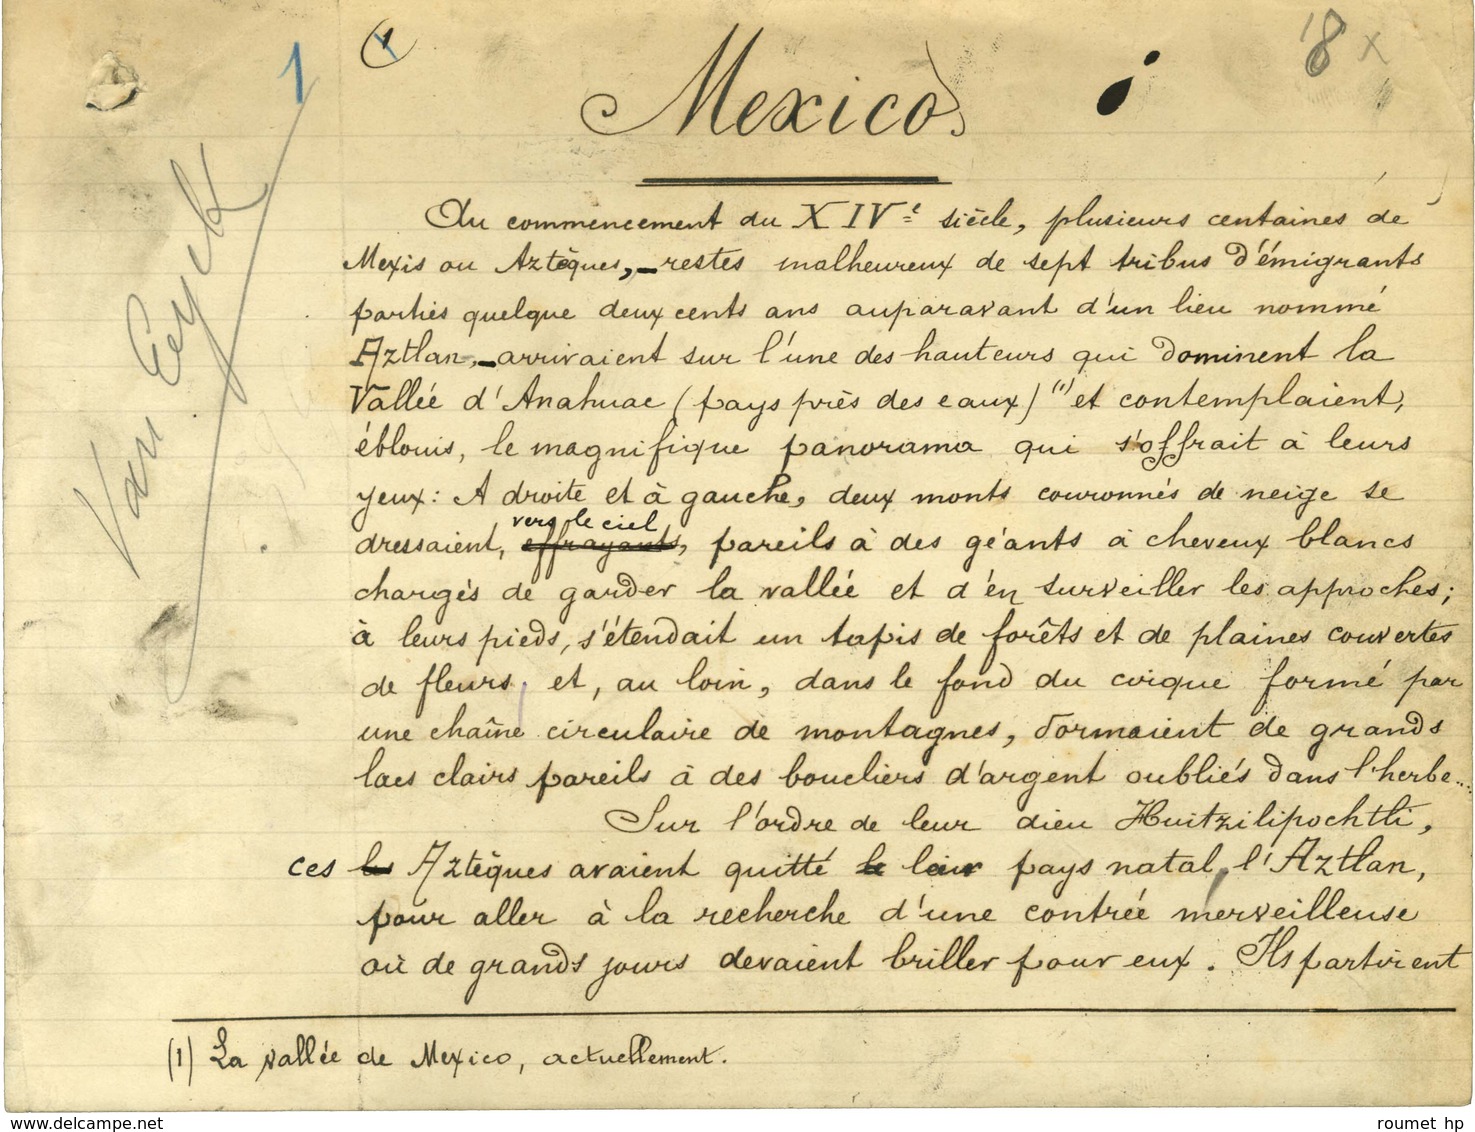 1
(1
18 x
Mexico
Van Eeyck
Au commencement du XIVe siècle, plusieurs centaines de
Mexis ou Aztèques, – restes malheureux de sept tribus d'émigrants
parties quelque deux cents ans auparavant d'un lieu nommé
Aztlan, – arrivaient sur l'une des hauteurs qui dominent la
Vallée d'Anahuac (pays près des eaux) (1) et contemplaient,
éblouis, le magnifique panorama qui s'offrait à leurs
yeux: A droite et à gauche, deux monts couronnés de neige se
vers le ciel
dressaient, effrayants, pareils à des géants à cheveux blancs
chargés de garder la vallée et d'en surveiller les approches;
à leurs pieds, s'étendait un tapis de forêts et de plaines couvertes
de fleurs, et, au loin, dans le fond du cirque formé par
une chaîne circulaire de montagnes, dormaient de grands
lacs clairs pareils à des boucliers d'argent oubliés dans l'herbe...
Sur l'ordre de leur dieu Huitzilipochtli,
ces les Aztèques avaient quitté le leur pays natal, l'Aztlan,
pour aller à la recherche d'une contrée merveilleuse
où de grands jours devaient briller pour eux. Ils partirent
(1) La vallée de Mexico, actuellement.
www.delcampe.net
roumet hp